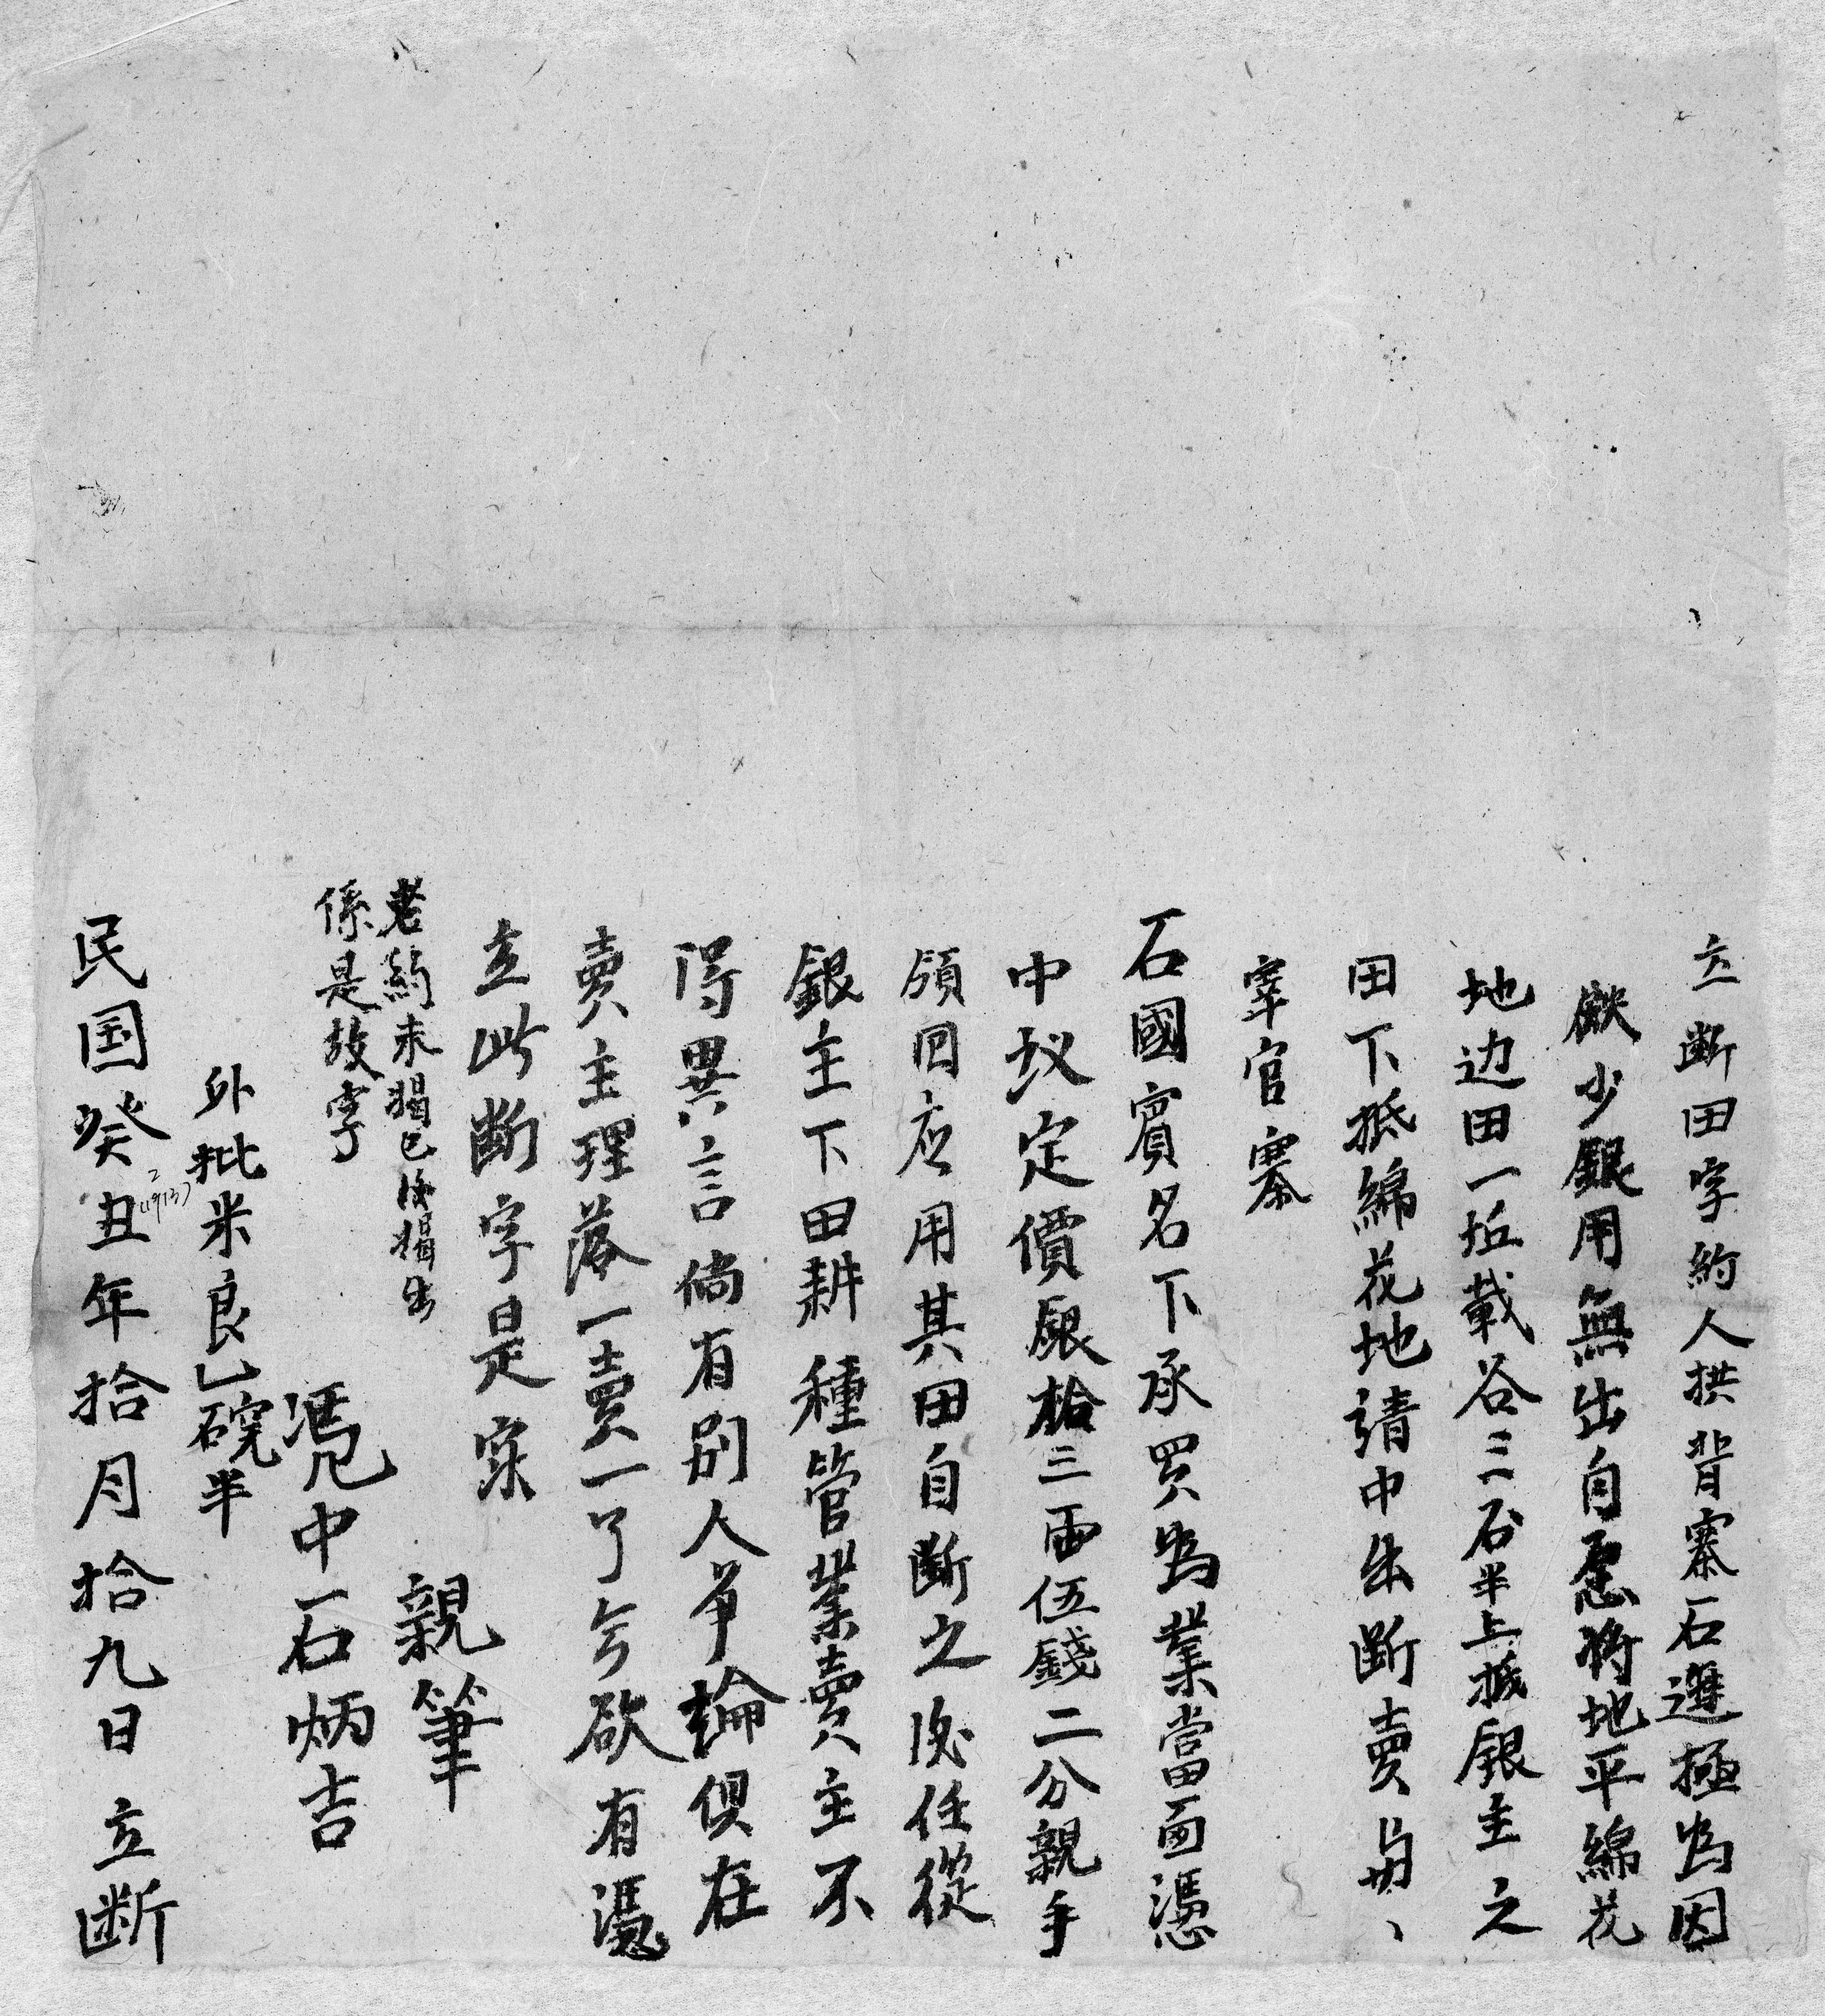 立断田字約人拱背寨石進極為因
缺少銀用無出自愿將地平綿花
地边田一坵載谷三石半上抵銀主之
田下抵綿花地請中出断賣与、
宰官寨
石國賓名下承買為業當面憑
中议定價銀拾三両伍錢二分親手
領囬应用其田自断之後任從
銀主下田耕種管業賣主不
得異言倘有别人争論俱在
賣主理落一賣一了今欲有憑
立此断字是寔
親筆
老約未揭已後揭出
係是故字
憑中石炳吉
外批米良乚碗半
民国癸丑年拾月拾九日立断
(1913)